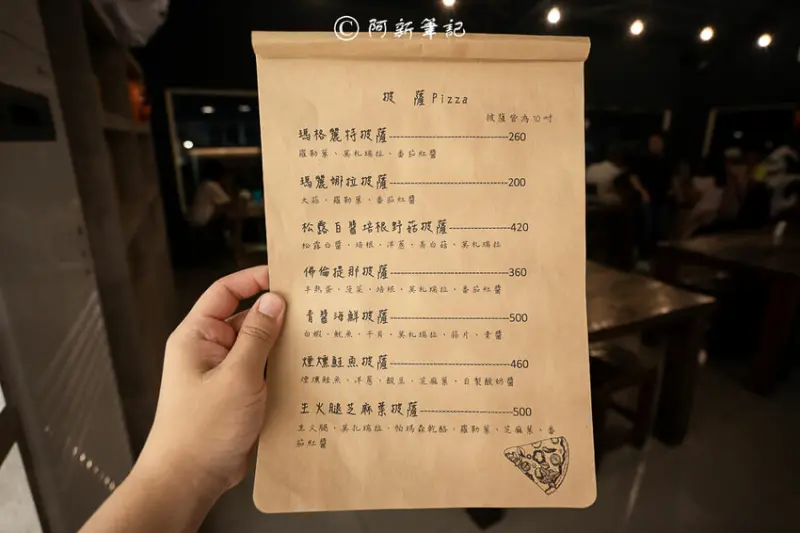 © 阿新筆記
披 薩 Pizza
披薩皆為10吋
瑪格麗特披薩---260
羅勒葉、莫札瑞拉、番茄紅醬
瑪麗娜拉披薩---200
大蒜、羅勒葉、番茄紅醬
松露白醬培根野菇披薩---420
松露白醬、培根、洋蔥、美白菇、莫札瑞拉
佛倫提那披薩---360
半熟蛋、菠菜、培根、莫札瑞拉、番茄紅醬
青醬海鮮披薩---500
白蝦、魷魚、干貝、莫札瑞拉、蒜片、青醬
煙燻鮭魚披薩---460
煙燻鮭魚、洋蔥、酸豆、芝麻葉、自製酸奶醬
生火腿芝麻葉披薩---500
生火腿、莫札瑞拉、帕瑪森乾酪、羅勒葉、芝麻葉、番
茄紅醬